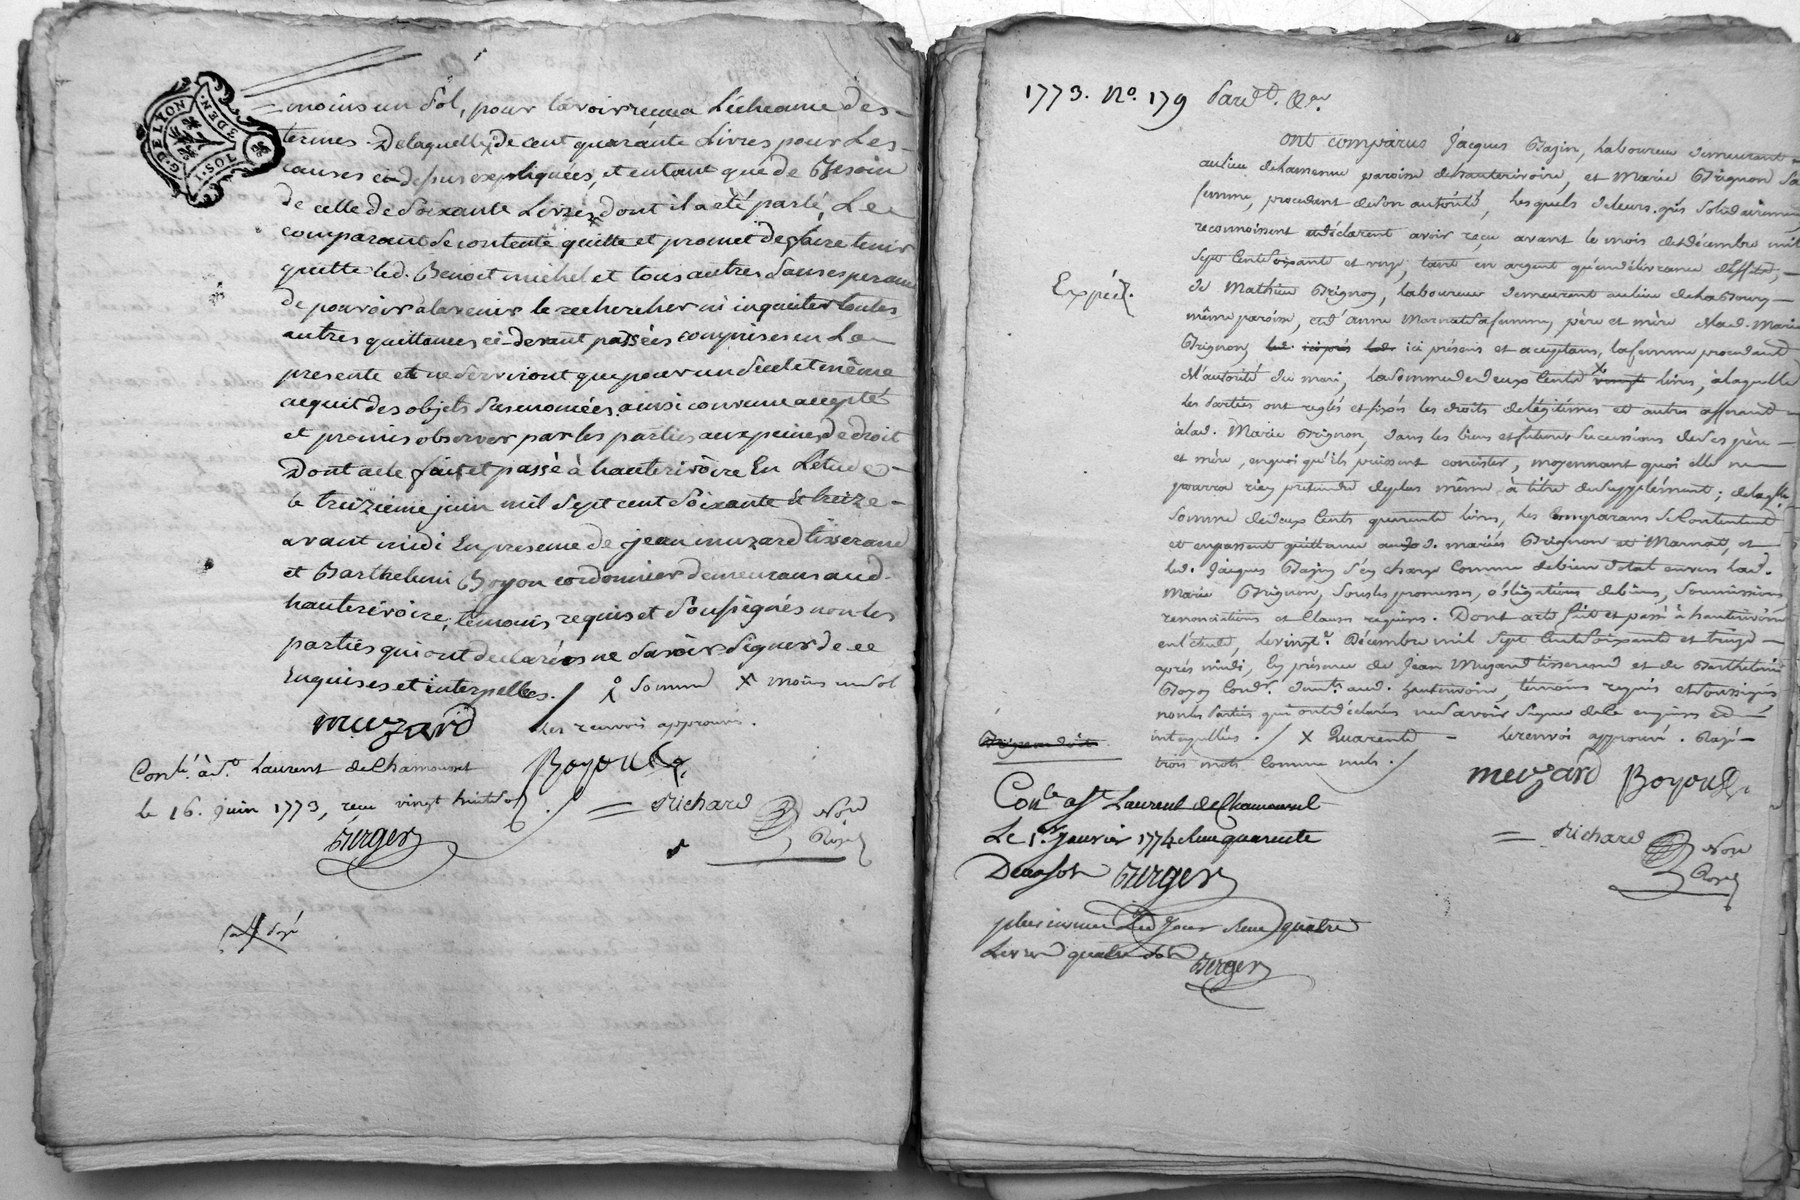 G. DE LYON
3 DEN.
1 SOL
moins un sol, pour l'avoir reçue a l'écheance des
termes. De laquelle de cent quarante Livres pour Les
causes ci-dessus expliquées, et entant que de Besoin
de celle de Soixante Livres dont il a eté parlé, Le
comparant se contente quitte et promet de faire tenir
quitte led. Benoet michel et tous autres sans esperance
de pouvoir a l'avenir le rechercher ni inquieter toutes
autres quittances ci-devant passées comprises en La
presente et ne serviront que pour un seul et même
acquit des objets susnomées. ainsi convenu accepté
et promis observer par les parties aux peines de droit
Dont acte fait et passé à hauterivoire En L'etude
le treizieme juin mil sept cent soixante et treize
avant midi En presence de jean muzard tisserand
et Barthelemi Boyou cordonnier demeurans aud.
hauterivoire, témoins requis et soussignés non les
parties qui ont déclarés ne savoir signer de ce
Enquises et interpellées. / somme X moins un sol
les renvois approuvés.
muzard
Boyou
Conlé. à St. Laurent de Chamousset
le 16. juin 1773, reçu vingt huit sols
Berger
Richard
Nore
Royal
1773. No. 179
Expéd.
Ont comparus Jacques Bazin, laboureur demeurant
au lieu de paroisse de hauterivoire, et Marie Brignon sa
femme, procedant de son autorité, lesquels de leurs grés solidairement
reconnoissent et déclarent avoir reçu avant le mois de décembre mil
sept cent soixante et onze, tant en argent qu'en délivrance d'effets,
de Mathieu Brignon, laboureur demeurant au lieu de
même paroisse, et d'anne Marnat sa femme, père et mère de lad. Marie
Brignon, ici présens et aceptans, la femme procedant
de l'autorité du mari, la somme de deux cents X vingt livres, à laquelle
les parties ont reglés et fixés les droits de légitimes et autres afferant
à lad. Marie Brignon, dans les biens et futures successions de ses père
et mère, en quoi qu'ils puissent consister, moyennant quoi elle ne
pourra rien pretendre de plus même à titre de supplément; de laqlle.
somme de deux cents quarente livres, les comparans se contentent
et en passent quittance auxd. mariés Brignon et Marnat, et
led. Jacques Bazin s'en charge comme de bien dotal envers lad.
Marie Brignon, sous les promesses, obligations de biens, soumissions
renonciations et clauses requises. Dont acte fait et passé à hauterivoire
en l'etude, le vingt. Décembre mil sept cent soixante et treize
après midi, En présence de Jean Muzard tisserand et de Barthelemi
Boyou Cordr. demts. aud. hauterivoire, témoins requis et soussignés
non les parties qui ont déclarés ne savoir signer de ce enquises et
interpellées. / X Quarente - le renvoi approuvé. Rayé
trois mots comme nuls. /
muzard Boyou
Conlé a St. Laurent de Chamousset
Le 1er. janvier 1774 reçu quarente
Deux sols Berger
plus insinué led. jour reçu quatre
Livres quatre sols
Berger
Richard
Nore
Royal